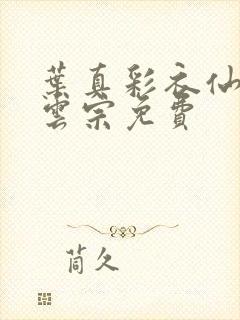 葉真彩衣仙
雲宗免費
茼久